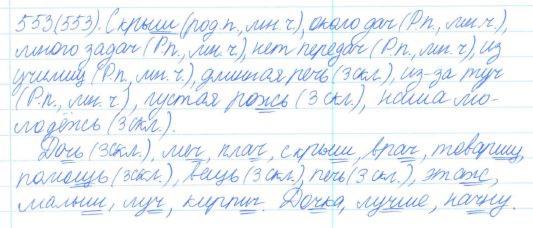 553(553). С крыш (род.п., мн.ч), около дач (Р.п., мн.ч.),
много задач (Р.п., мн.ч), нет передач (Р.п., мн.ч), из
училищ (Р.п., мн.ч.), длинная речь (3 скл.), из-за туч
(Р.п., мн.ч), густая рожь (3 скл.), наша мо-
лодёжь (3 скл.).
Дочь (3 скл.), меч, плач, с крыш, врач, товарищ,
помощь (3 скл.), вещь (3 скл.), печь (3 скл.), этаж,
малыш, луч, кирпич. Дочка, лучше, начну.